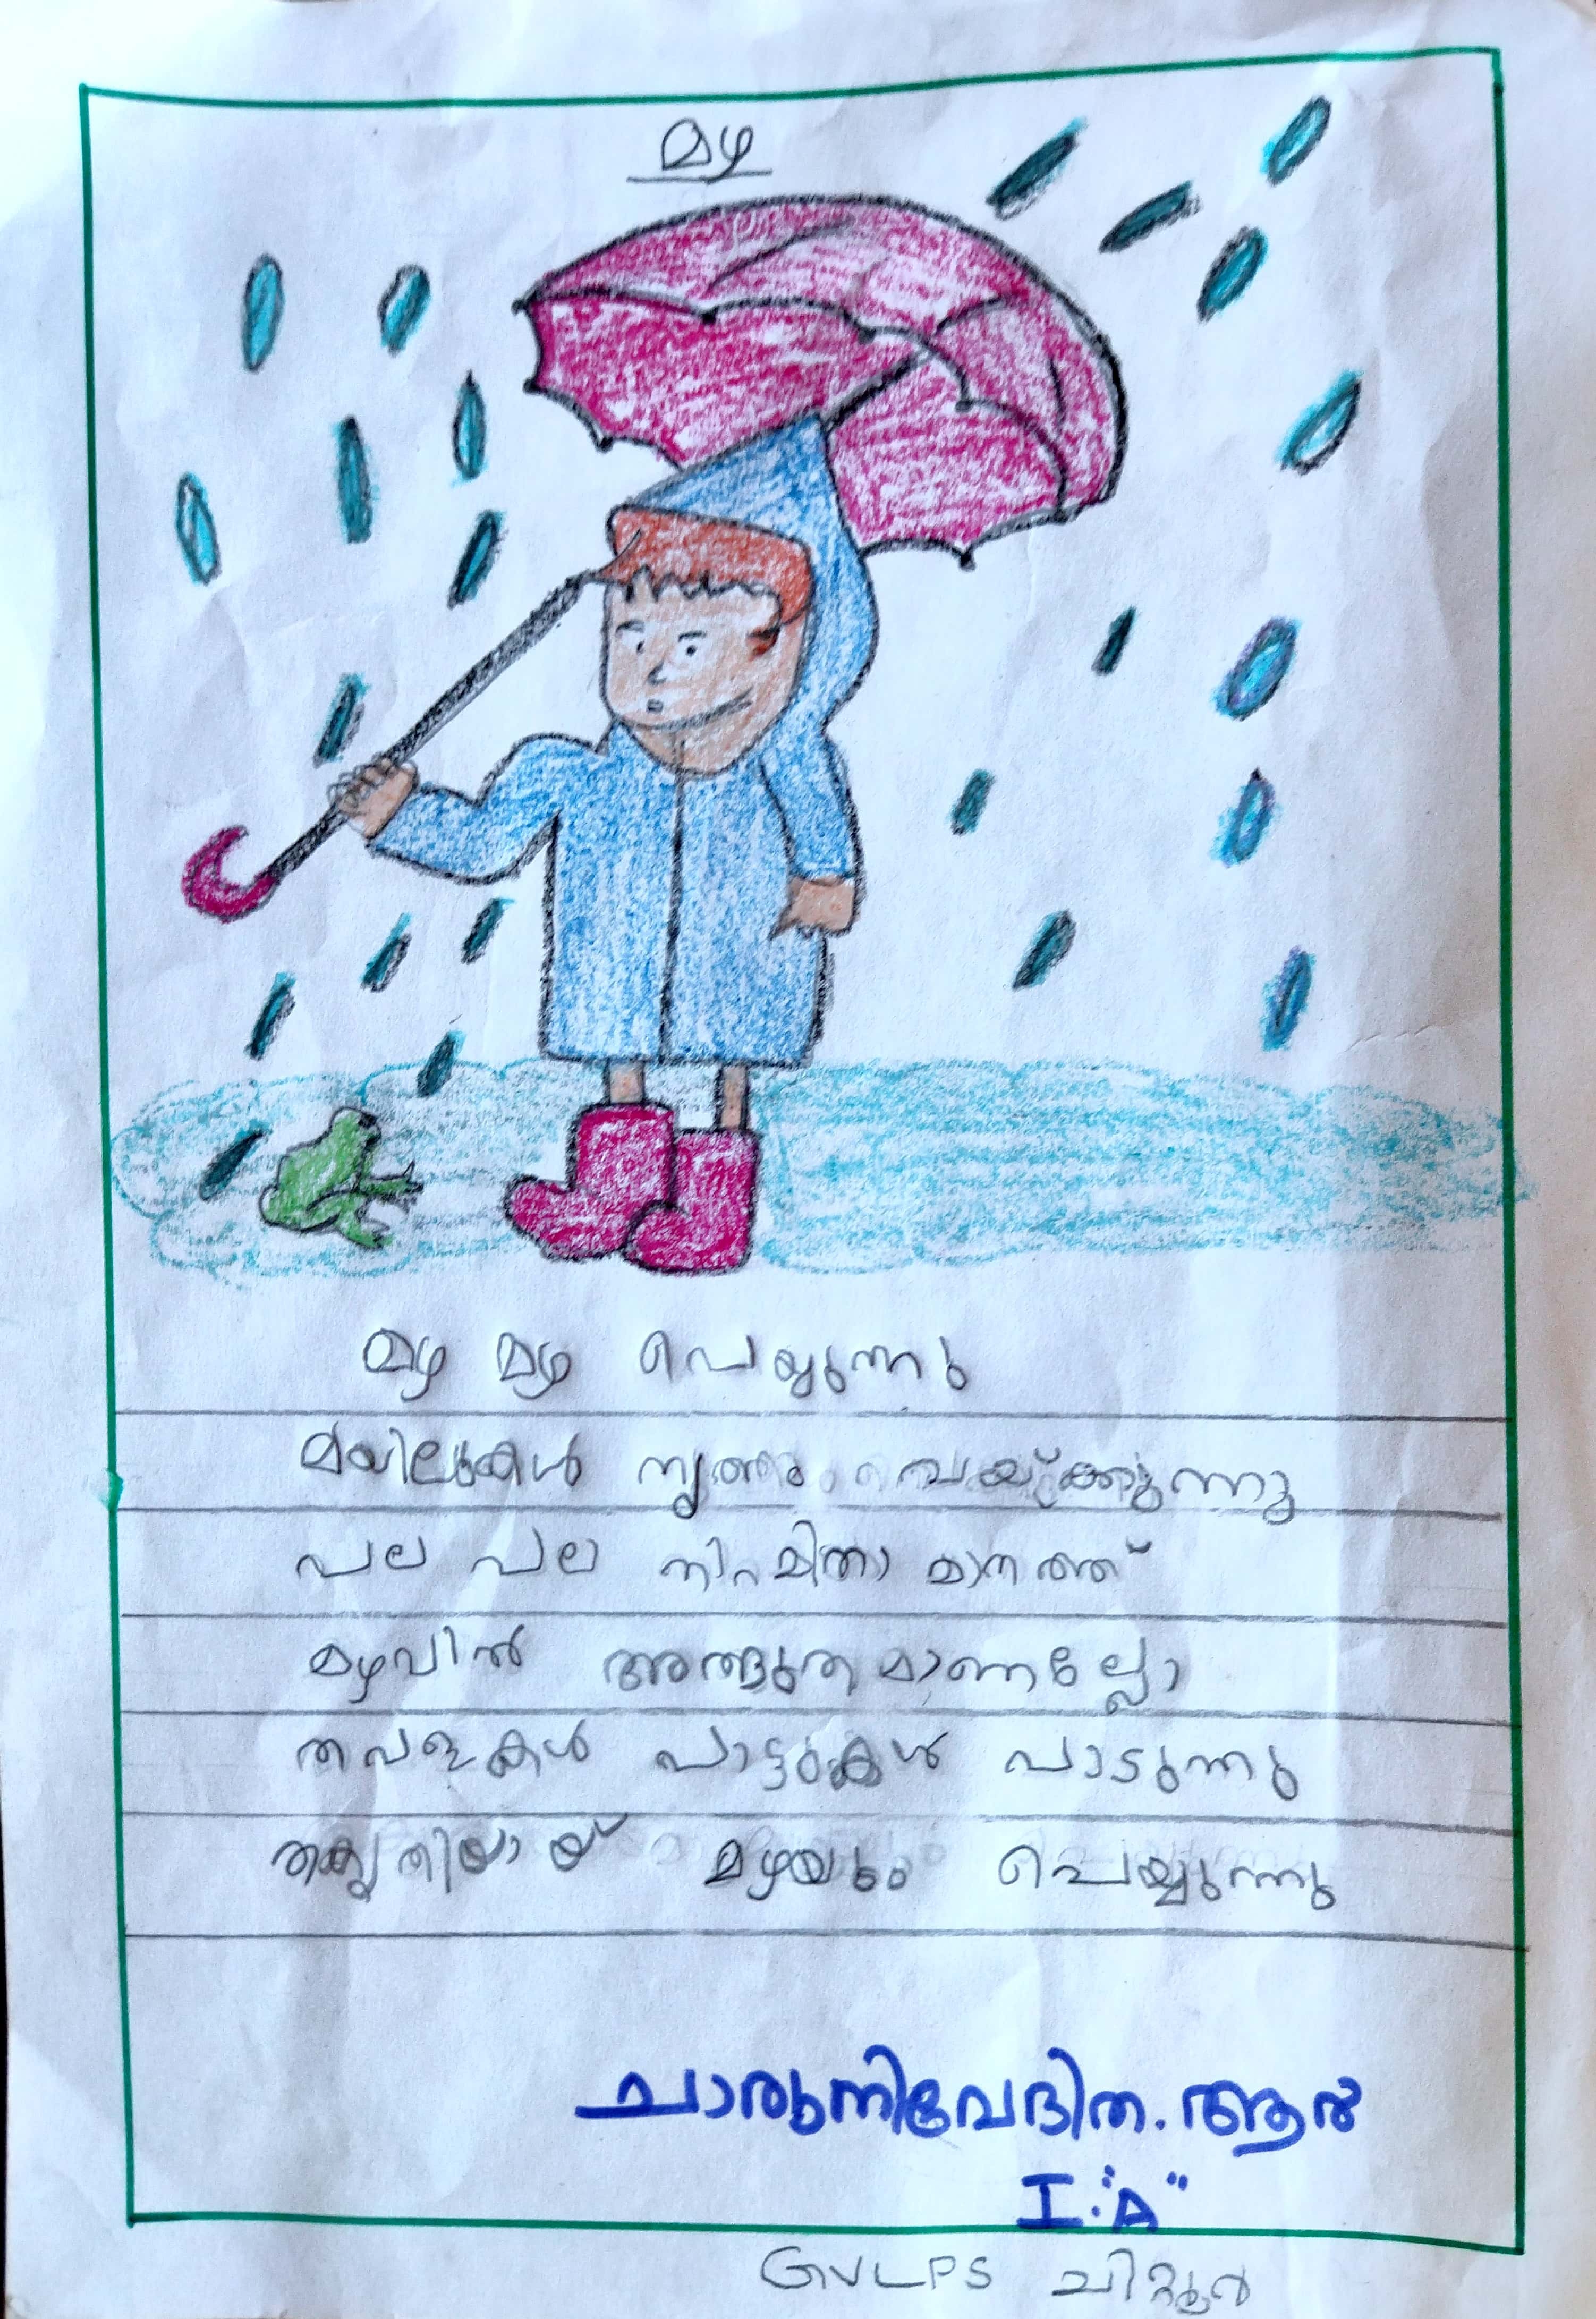 മഴ
മഴ മഴ പെയ്യുന്നു
മയിലുകൾ നൃത്തം വെയ്ക്കുന്നു
പല പല നിറമിതാ മാനത്ത്
മഴവിൽ അത്ഭുതമാണല്ലോ
തവളകൾ പാട്ടുകൾ പാടുന്നു
തകൃതിയായ് മഴയും പെയ്യുന്നു
ചാരുനിവേദിത.ആർ
I."A"
GVLPS ചിറ്റൂർ